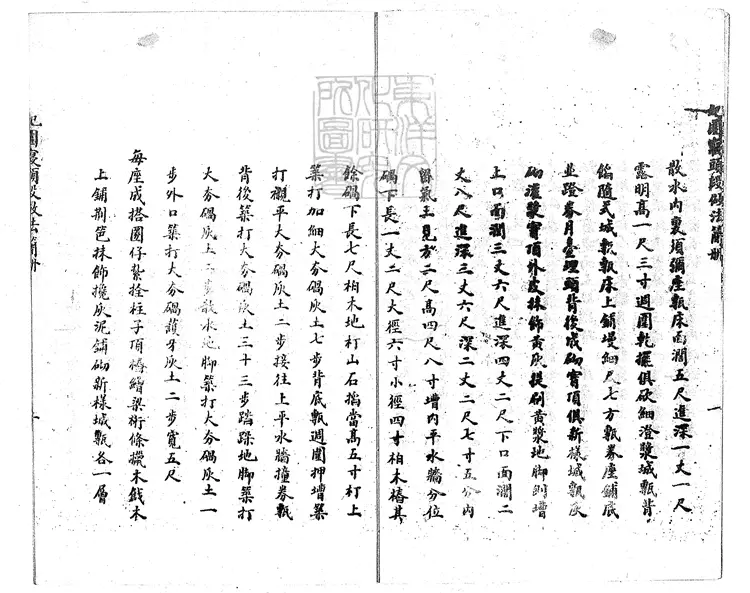 妃園寢頭段做法簡册
散水內裏頊彌座甎床面濶五尺進深一丈一尺
露明高一尺三寸週圍乾擺俱砍細澄漿城甎背
餡隨式城甎甎床上鋪墁細尺七方甎券座鋪底
並蹬券月臺埋頭背後成砌寳頂俱新樣城甎灰
砌灌漿寳頂外皮抹飾黃灰提刷黃漿地脚刨槽
上口面濶三丈六尺進深四丈二尺下口面濶二
丈八尺進深三丈六尺深二丈二尺七寸五分內
留氣土見方二尺高四尺八寸槽內平水牆分位
碢下長一丈二尺大徑六寸小徑四寸柏木樁其
餘碢下長七尺柏木地釘山石掐當高五寸釘上
築打加細大夯碢灰土七步背底甎週圍押槽築
打襯平大夯碢灰土二步接往上平水牆撞券甎
背後築打大夯碢灰土三十三步踏跺地脚築打
大夯碢灰土二步散水地脚築打大夯碢灰土一
步外口築打大夯碢護牙灰土二步寬五尺
每座成搭圈仔紮拴柱子頂樁鰭梁術條㯿木戧木
上鋪荆笆抹飾攙灰泥鋪砌新樣城甎各一層
妃園寢頭段做法簡册
東洋文化研究所圖書